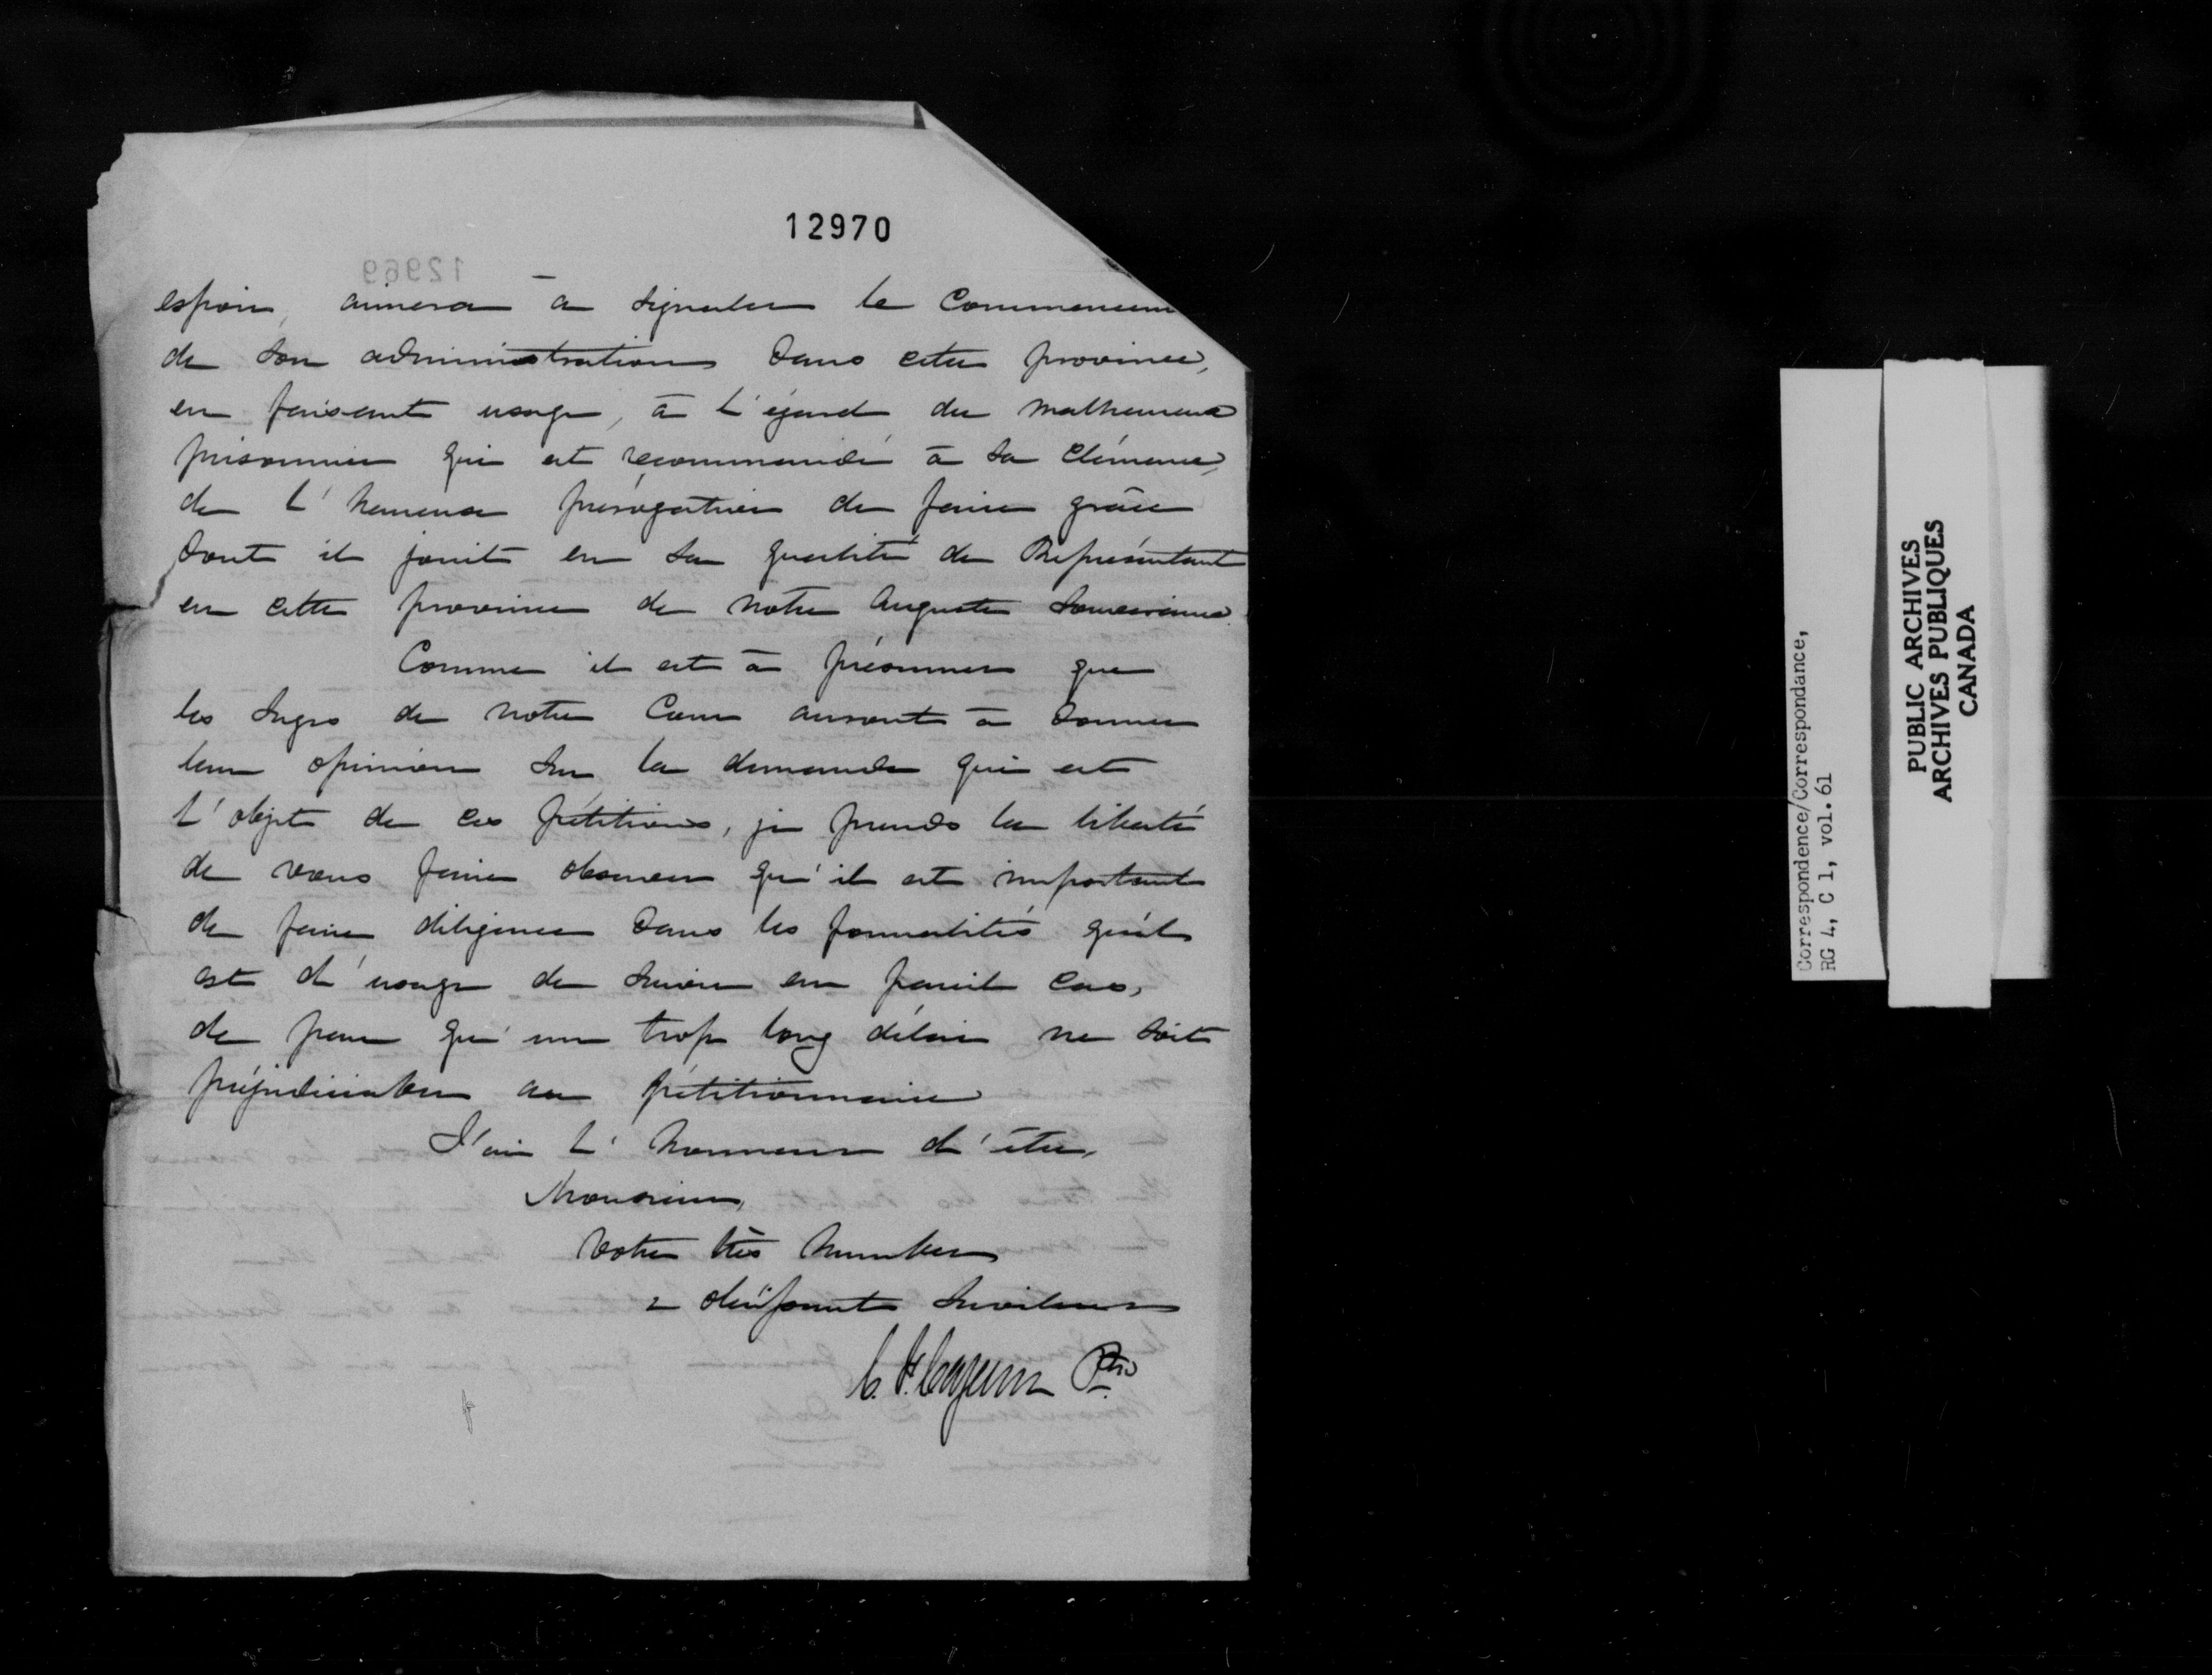 12970
12969
espoir, aimera à signaler le Commencem
de son administration dans cette province,
en faisant usage, à l'égard du malheureux
prisonnier qui est recommandé à sa clémence,
de l'heureuse prérogative de faire grâce
dont il jouit en sa qualité de Représentant
en cette province de notre Auguste Souveraine.
Comme il est à présumer que
les Juges de notre Cour auront à donner
leur opinion sur la demande qui est
l'objet de ces pétitions, je prends la liberté
de vous faire observer qu'il est important
de faire diligence dans les formalités qu'il
est d'usage de suivre en pareil cas,
de peur qu'un trop long délai ne soit
préjudiciable au pétitionnaire
J'ai l'honneur d'être,
Monsieur,
Votre très humble
& obéissant Serviteur
C. F. Cazeau Ptre
Correspondence/Correspondance,
RG 4, C 1, vol.61
PUBLIC ARCHIVES
ARCHIVES PUBLIQUES
CANADA